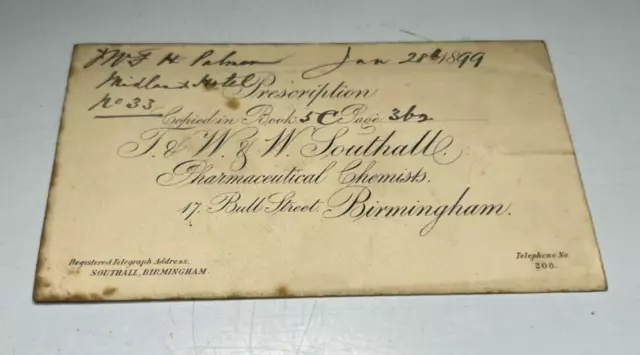 H Palmer Jan 28th 1899
Midland Hotel
No 33
Prescription
Copied in Book 5C Page 362
T. & W. & W. Southall.
Pharmaceutical Chemists.
17. Bull Street. Birmingham.
Registered Telegraph Address,
SOUTHALL, BIRMINGHAM.
Telephone No.
206.